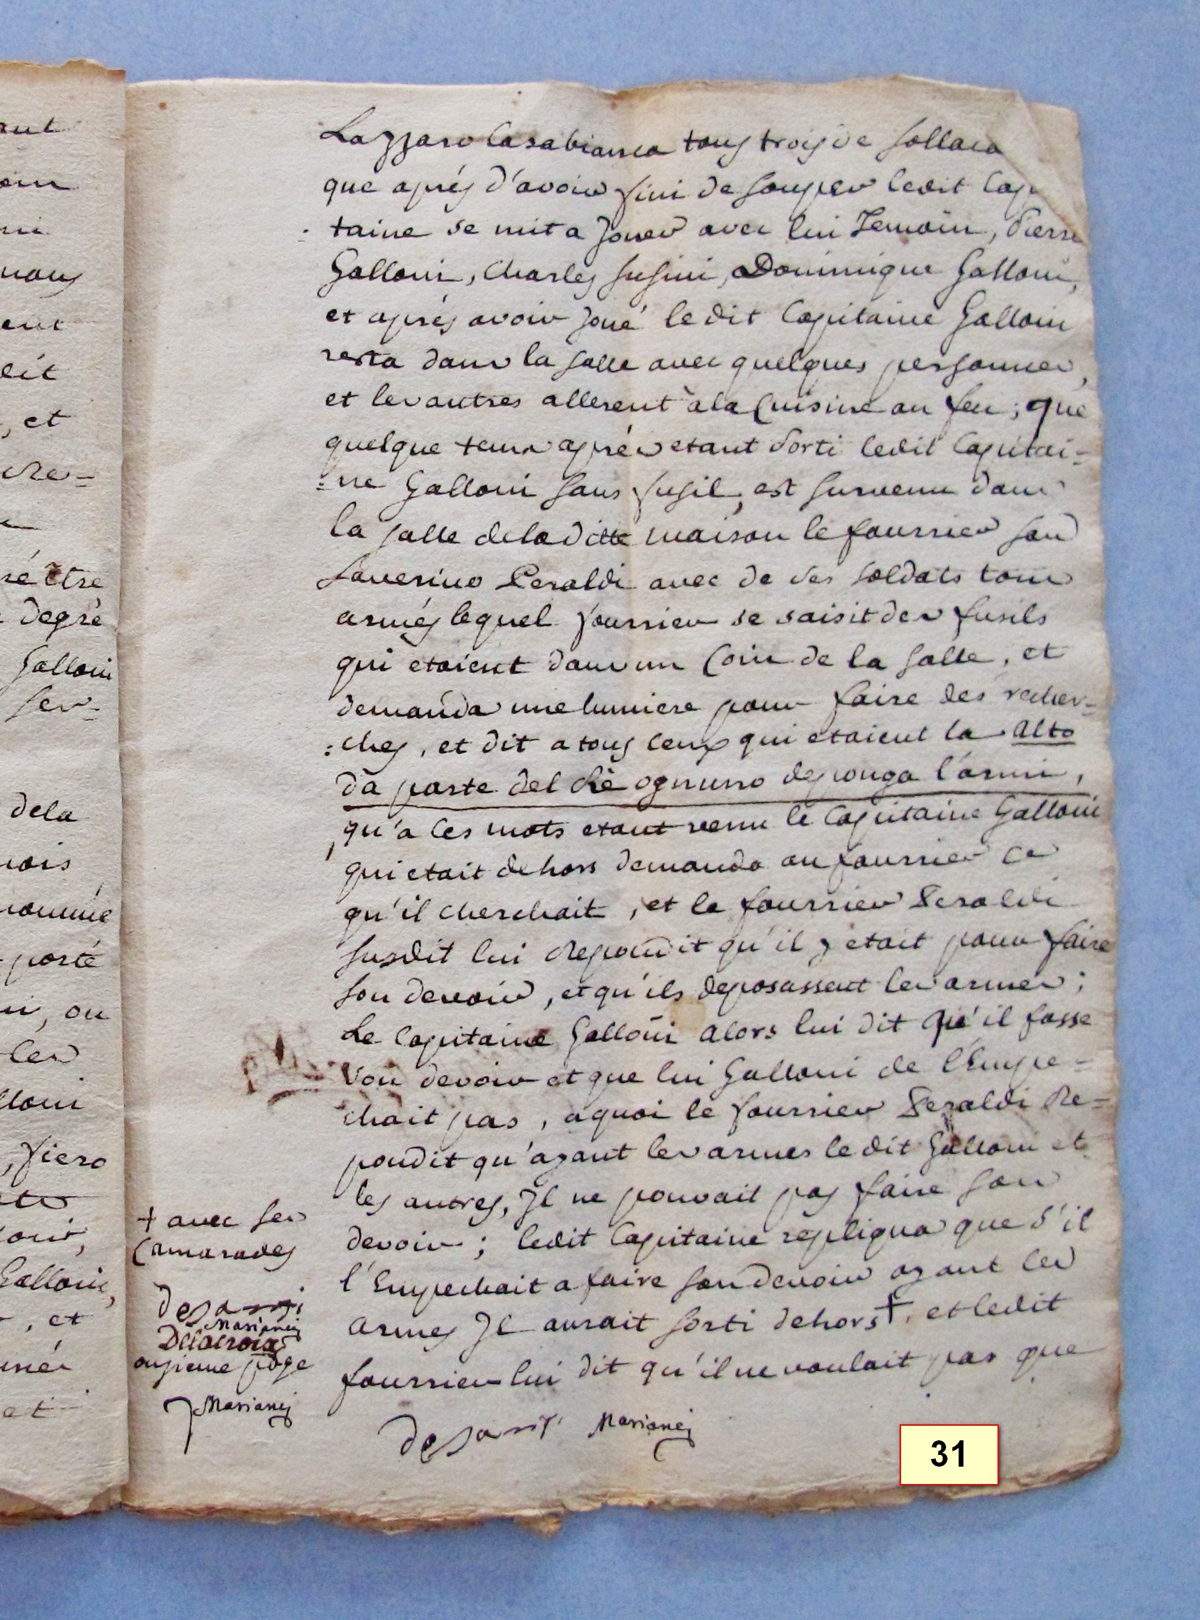 Lazzaro Casabianca tous trois de Sollaca
que aprés d'avoir fini de souper ledit Cap
taine se mit a Jouer avec lui Temoin, Pierre
Galloni, Charles Susini, Dominique Galloni,
et aprés avoir Joué ledit Capitaine Galloni
resta dans la salle avec quelques personnes,
et les autres allerent à la Cuisine au feu; que
quelque tems aprés etant sorti ledit Capitai=
=ne Galloni sans fusil, est survenu dans
la salle de la ditte maison le fourrier Son
Saverino Peraldi avec de ses soldats tous
armés lequel fourrier se saisit des fusils
qui etaient dans un Coin de la salle, et
demanda une lumiere pour faire des recher=
=ches, et dit a tous ceux qui etaient la alto
da parte del Rè ognuno deponga l'armi,
qu'a ces mots etant venu le Capitaine Galloni
qui etait dehors demanda au fourrier ce
qu'il cherchait, et le fourrier Peraldi
susdit lui Repondit qu'il y etait pour faire
son devoir, et qu'ils deposassent les armes;
Le Capitaine Galloni alors lui dit qu'il fasse
son devoir et que lui Galloni ne l'Empe=
chait pas, a quoi le fourrier Peraldi Re=
pondit qu'ayant les armes le dit Galloni et
les autres, Il ne pouvait pas faire son
devoir; ledit Capitaine repliqua que s'il
l'Empechait a faire son devoir ayant les
armes Il aurait sorti dehors +, et ledit
fourrier lui dit qu'il ne voulait pas que
+ avec ses
Camarades
Desanti
Marianj
Delacroix
onzieme page
Marianj
Desanti Marianj
31
aut
nous
ent
, et
Re=
é être
degré
Galloni
ser=
dela
nommé
porté
, ou
les
lloni
, fiero
Galloni,
, et
et